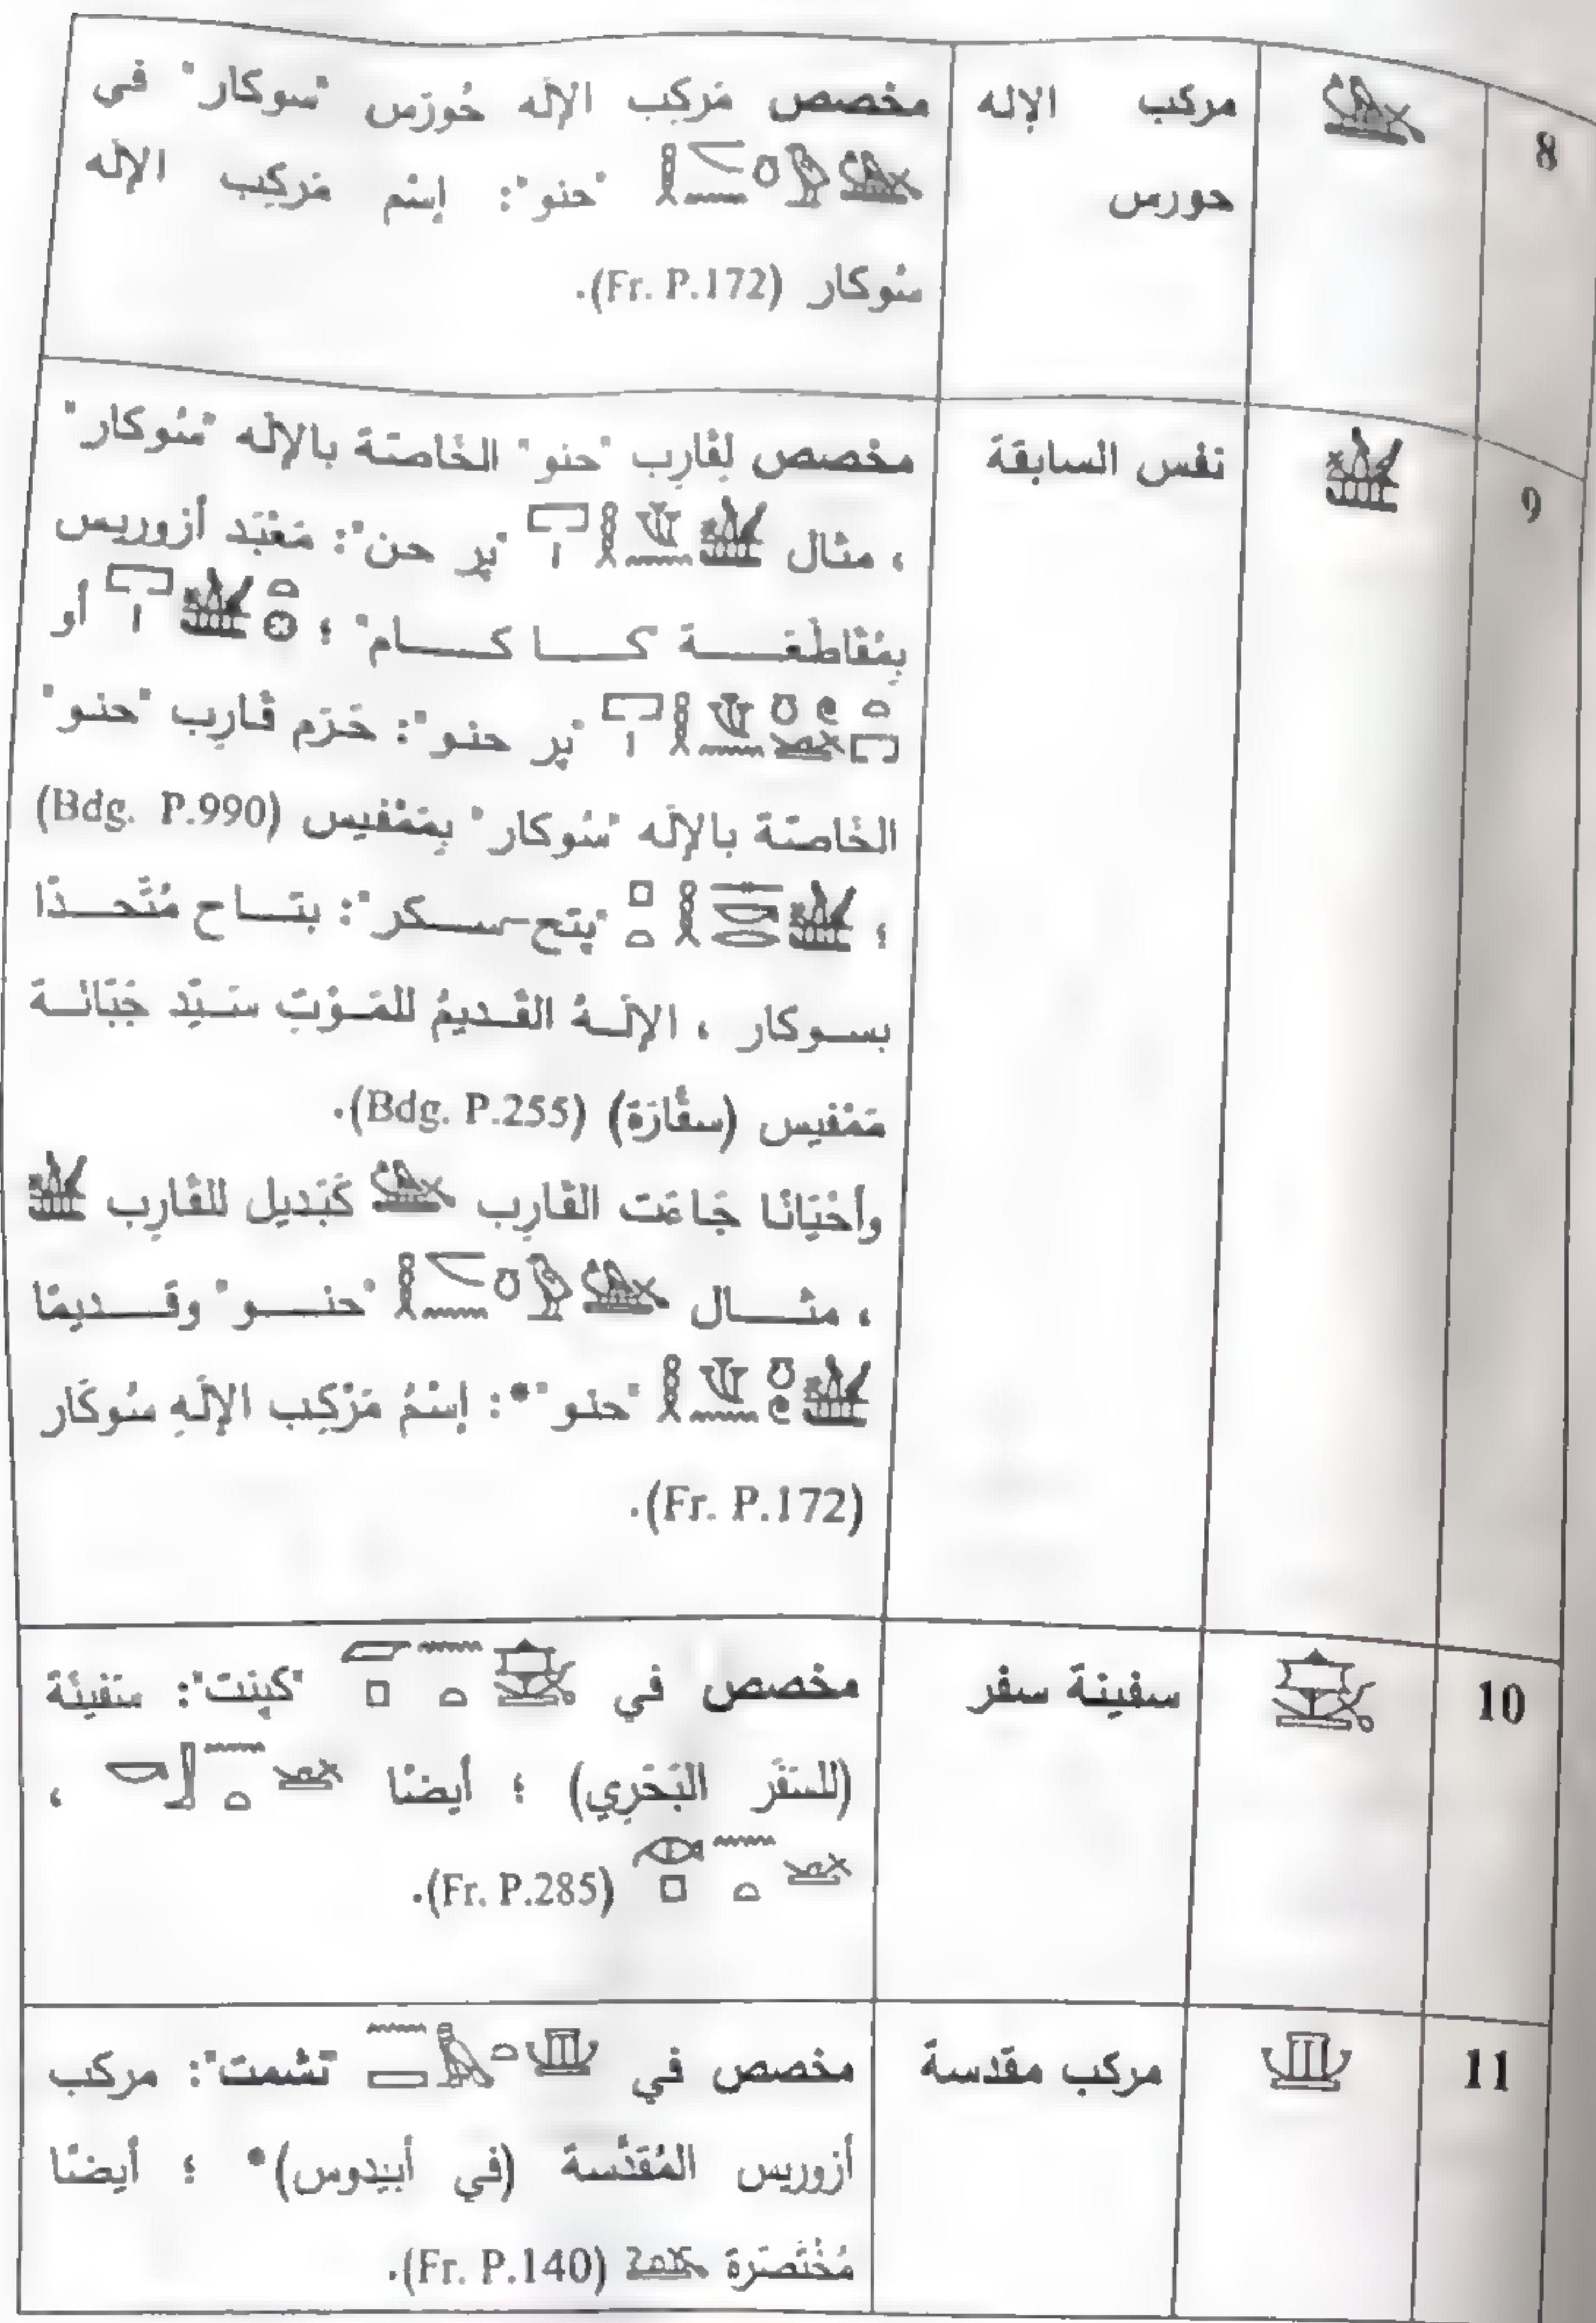 8
مركب الإله
حورس
مخصص مَركِب الإله حُورَس "سوكار" في
"حنو": اِسْم مَركِب الإله
سُوكار (Fr. P.172).
9
نفس السابقة
مخصص لِقَارِب "حنو" الخَاصَّة بالإلَه "سُوكار"
، مثال "پر حن": مَعْبَد أزوريس
بِمُقَاطَعَة كا كام" ؛ أو
"پر حنو": حَرَم قَارِب "حنو"
الخَاصَّة بالإلَه "سُوكار" بِمَمْفيس (Bdg. P.990)
؛ "پتح-سكر": بتاح مُتَّحدًا
بسوكار ، الإلَهُ القَديمُ للمَوْتِ سَيِّد جَبَّانَة
مَمْفيس (سقَّارَة) (Bdg. P.255).
وأحْيَانًا جَاءَت القَارِب كَبَديل للقَارِب
، مثال "حنو" وقديمًا
"حنو"*: اِسْمُ مَرْكِب الإلَهِ سُوكَار
(Fr. P.172).
10
سفينة سفر
مخصص في "كپنت": سَفينَة
(للسَفَر البَحَرِي) ؛ أيضًا ،
(Fr. P.285).
11
مركب مقدسة
مخصص في "نشمت": مركب
أزوريس المُقَدَّسة (في أبيدوس)* ؛ أيضًا
مُخْتَصَرَة (Fr. P.140).